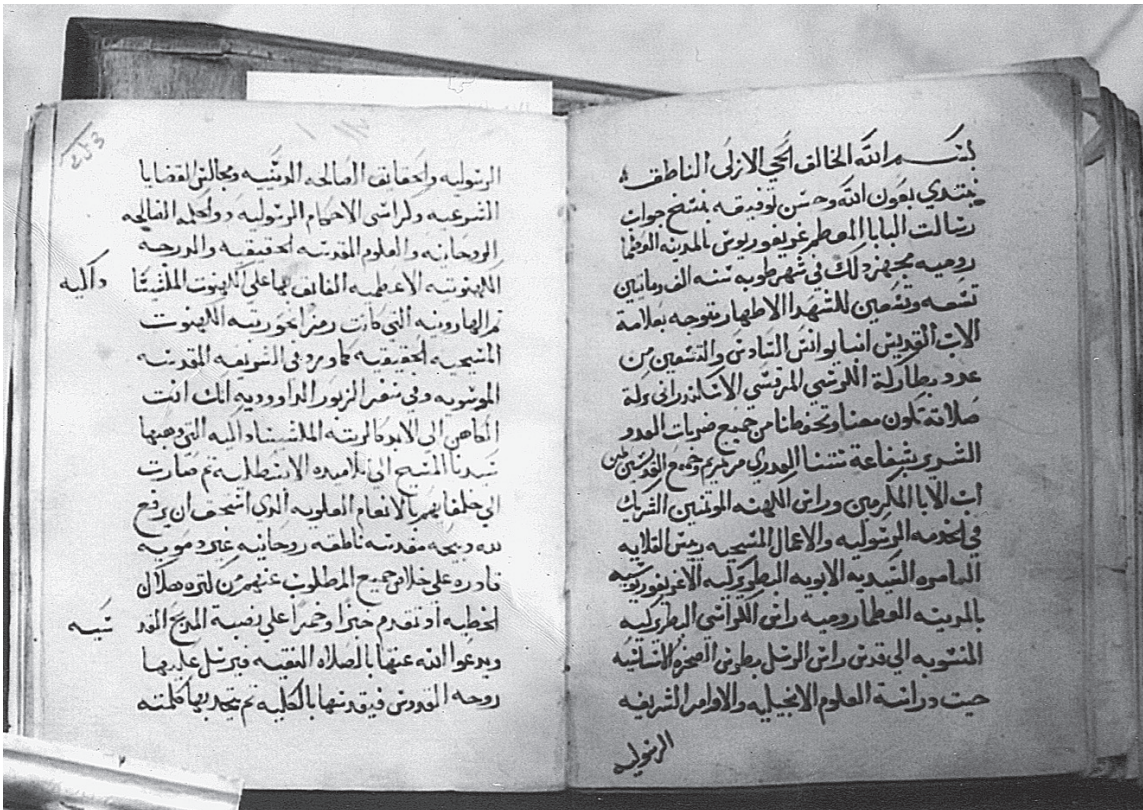 بسم الله الخالق الحي الازلي الناطق
نبتدي بعون الله وحسن توفيقه بنسخ جواب
رسالت البابا المعظم غريغوريوس بالمدينه العظما
روميه مجهز دلك في شهر طوبه سنه الف ومايتين
تسعه وتسعين للشهدا الاطهار متوجه بعلامة
الاب القديس انبا يوانس السادس والتسعين من
عدد بطاركة الكرسي المرقسي الاسكندراني بركة
صلاته تكون معنا وتحفظنا من جميع ضربات العدو
الشرير بشفاعة ستنا العدري مرتمريم وجميع القديسين امين
اب الابا المكرمين وراس الكهنه الموتمنين الشريك
في الخدمه الرسوليه والاعمال المسيحيه رييس القلايه
العامره السيديه الابويه البطريركيه الاغريغوريوسيه
بالمدينه العظما روميه راس الكراسي البطريركيه
المنسوبه الي قدس راس الرسل بطرس الصخره الاساسيه
حيت دراسة العلوم الانجيليه والاوامر الشريفه
الرسوليه
الرسوليه والحقايق الصالحه الدينيه ومجالس القضايا
الشرعيه وكراسي الاحكام الرسوليه دو الحله الفالحه
الروحانيه والعلوم المقدسه الحقيقيه والدرجه
الكهنوتيه الاعظميه الفايق بها علي كهنوت الملشيسا داكيه
تم الهارونيه التي كانت رمزا نحو ريسة الكهنوت
المسيحيه الحقيقيه كما ورد في الشريعه المقدسه
الموسويه وفي سفر الزبور الداووديه انك انت
الكاهن الي الابد كالرتبه الملشيساداكيه التي وهبها
سيدنا المسيح الي تلاميده الابسطليه تم صارت
الي خلفايهم بالانعام العلويه الدي استحق ان يرفع
يده دبيحه مقدسه ناطقه روحانيه غير دمويه
قادره علي خلاص جميع المطلوب عنهم من كترة هلاك
الخطيه او تقدم خبزا وخمرا علي نصبة المدبح المقد سيه
ويدعوا الله عنها بالصلاه النقيه فيرسل عليها
روحه القدوس فيقدسها بالكليه تم يتحد بها كلمته